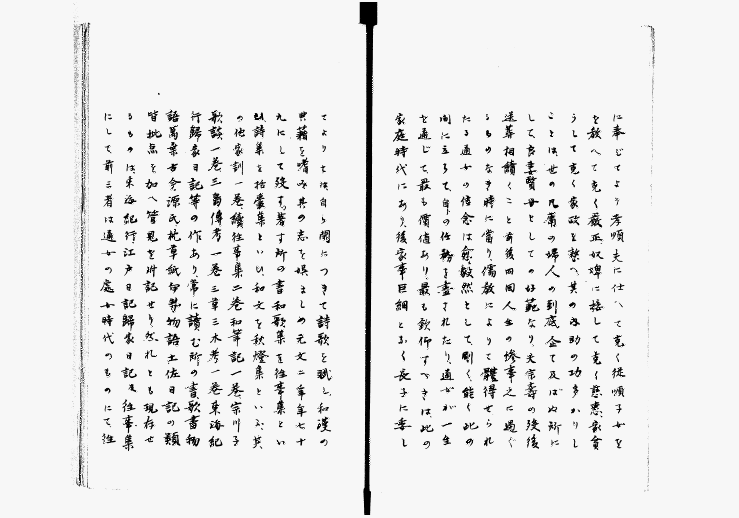 に奉じてより孝順夫に仕へて克く従順子女を
を教へて克く厳正奴婢に接して克く慈悪家貧
うして克く家政を整へ其の内助の功多かりし
ことは世の凡庸の婦人の到底企て及ばぬ所に
して良妻賢母としての好範なり夫宗壽の歿後
送葬相續くこと前後四回人生の惨事之に過ぐ
るものなき時に當り儒教によりて體得せられ
たる通女の信念は愈毅然として剛く能く此の
間に立ちて自の任務を盡されたり通女が一生
を通じて最も價値あり最も欽仰すべきは此の
家庭時代にあり後家事巨細となく長子に委し
てよりは自ら閑につきて詩歌を賦し和漢の
典籍を嗜み其の志を娯ましめ元文二年年七十
九にして歿す著す所の書和歌集を往事集とい
ひ詩集を括嚢集といひ和文を秋燈集といふ其
の他家訓一巻續往事集二巻和筆記一巻宗川子
歌談一巻三島傳考一巻三草三木考一巻東海紀
行歸家日記等の作あり常に讀む所の書歌書物
語萬葉古今源氏枕草紙伊勢物語土佐日記の類
皆批点を加へ管見を附記せり然れとも現存せ
るものは東海紀行江戸日記歸家日記及往事集
にして前三者は通女の處女時代のものにて往